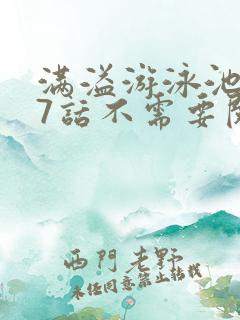 满溢游泳池
7話不需要
西門老野
未经同意禁止转载